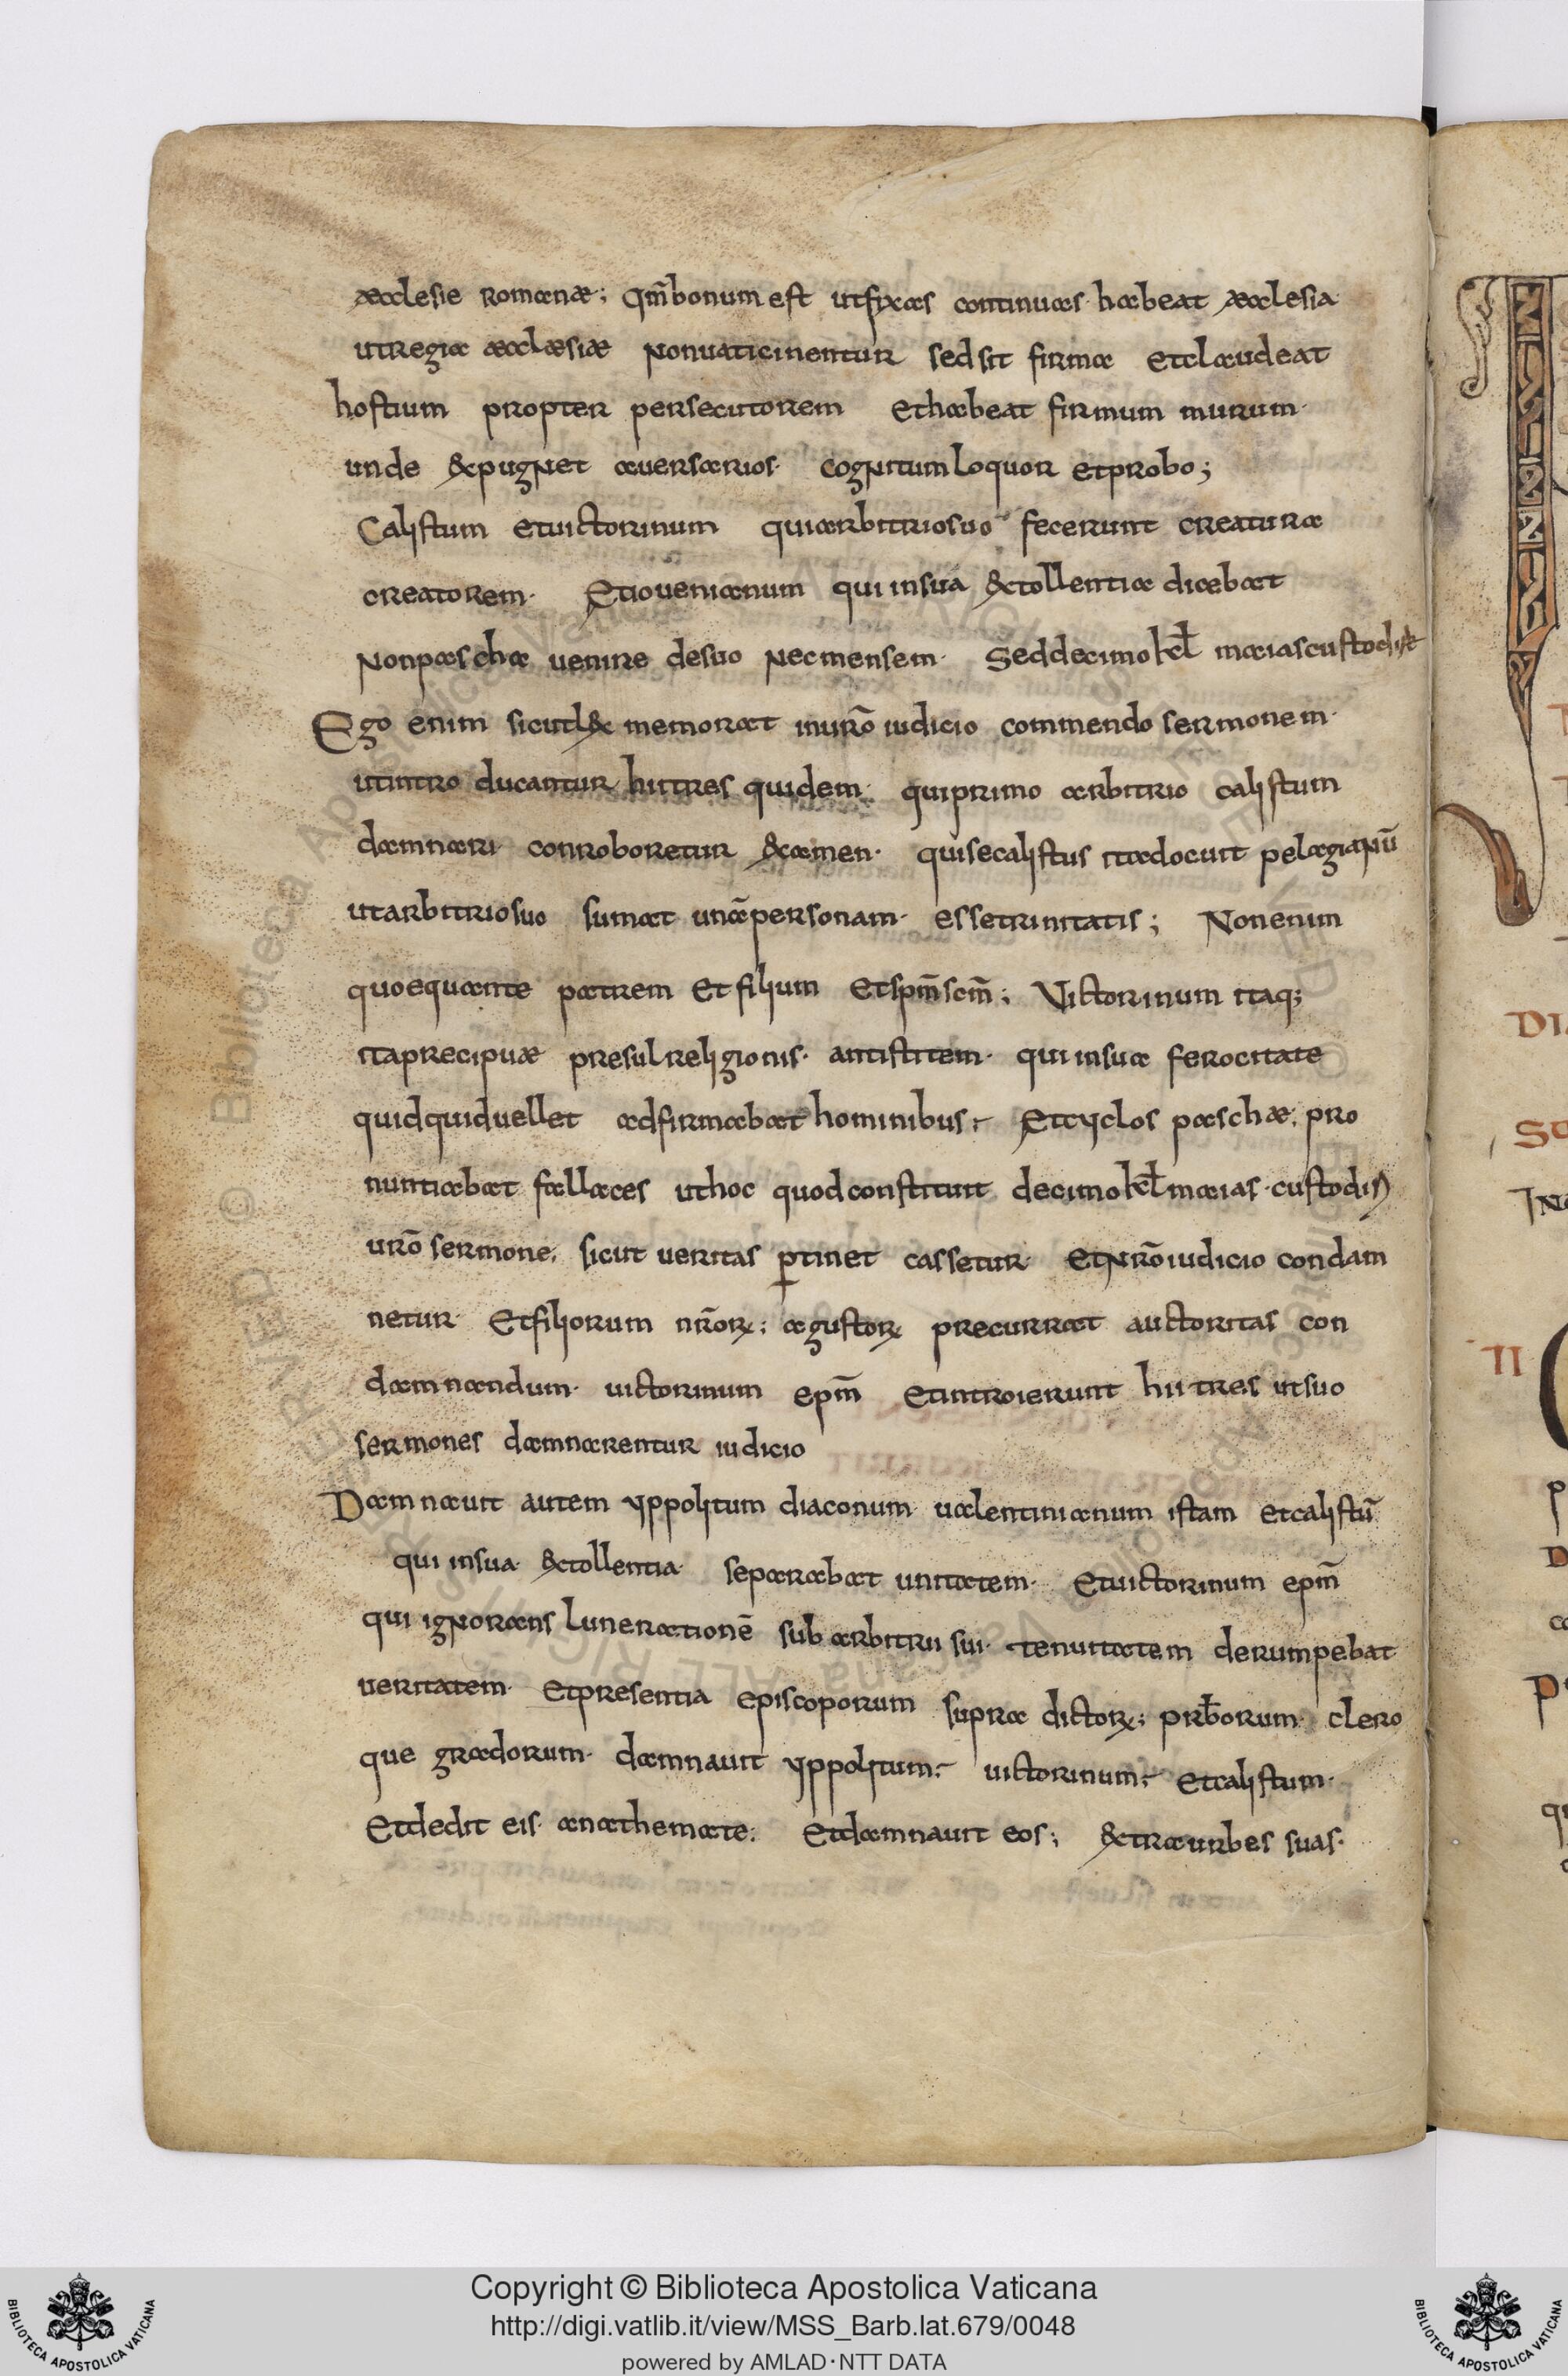 aecclesie romanae; qm̄ bonum est ut fyxas continuas· habeat aecclesia
ut regia aecclaesiae non vaticinentur sed sit firma et claudeat
hostium propter persecutorem et habeat firmum murum·
unde & pugnet aversarios· cognitum loquor et probo;
Calistum et uictorinum qui arbitrio suo fecerunt creatura
creatorem· Et iouenianum qui in sua extollentia dicebat
Non pascha uenire de suo nec mensem· Sed decimo kl̄ maias custodi&
Ego enim sicut lex memorat in uro̅ iudicio commendo sermonem·
ut intro ducantur hii tres quidem· qui primo arbitrio calistum
damnari conroboretur examen· qui se calistus ita docuit pelagianū
ut arbitrio suo sumat unā personam· esse trinitatis; Non enim
quoequante patrem et filium et spm̄ scm̄; Victorinum itaq;
ita precipuae presul religionis· antistitem· qui in sua ferocitate
quidquid uellet adfirmabat hominibus; Et cyclos paschae; pro
nuntiabat fallaces ut hoc quod constituit decimo kl̄ maias· custodiri
uro̅ sermone; sicut ueritas ꝑtinet cassetur· et nro̅ iudicio condam
netur· Et filiorum nr̄oꝝ; agustoꝝ precurrat auctoritas con
damnandum· uictorinum epm̄ et introierunt hii tres ut suo
sermones damnarentur iudicio
Damnauit autem yppolitum diaconum ualentinianum istam et calistū
qui in sua· extollentia· separabat unitatem· et uictorinum epm̄
qui ignorans lune rationē sub arbitrii sui· tenuitatem derumpebat
ueritatem· et presentia episcoporum supra dictoꝝ; prb̄orum· clero
que gradorum· damnauit yppolitum; uictorinum; et calistum·
Et dedit eis· anathemate; et damnauit eos; extra urbes suas·
Copyright © Biblioteca Apostolica Vaticana
http://digi.vatlib.it/view/MSS_Barb.lat.679/0048
powered by AMLAD·NTT DATA